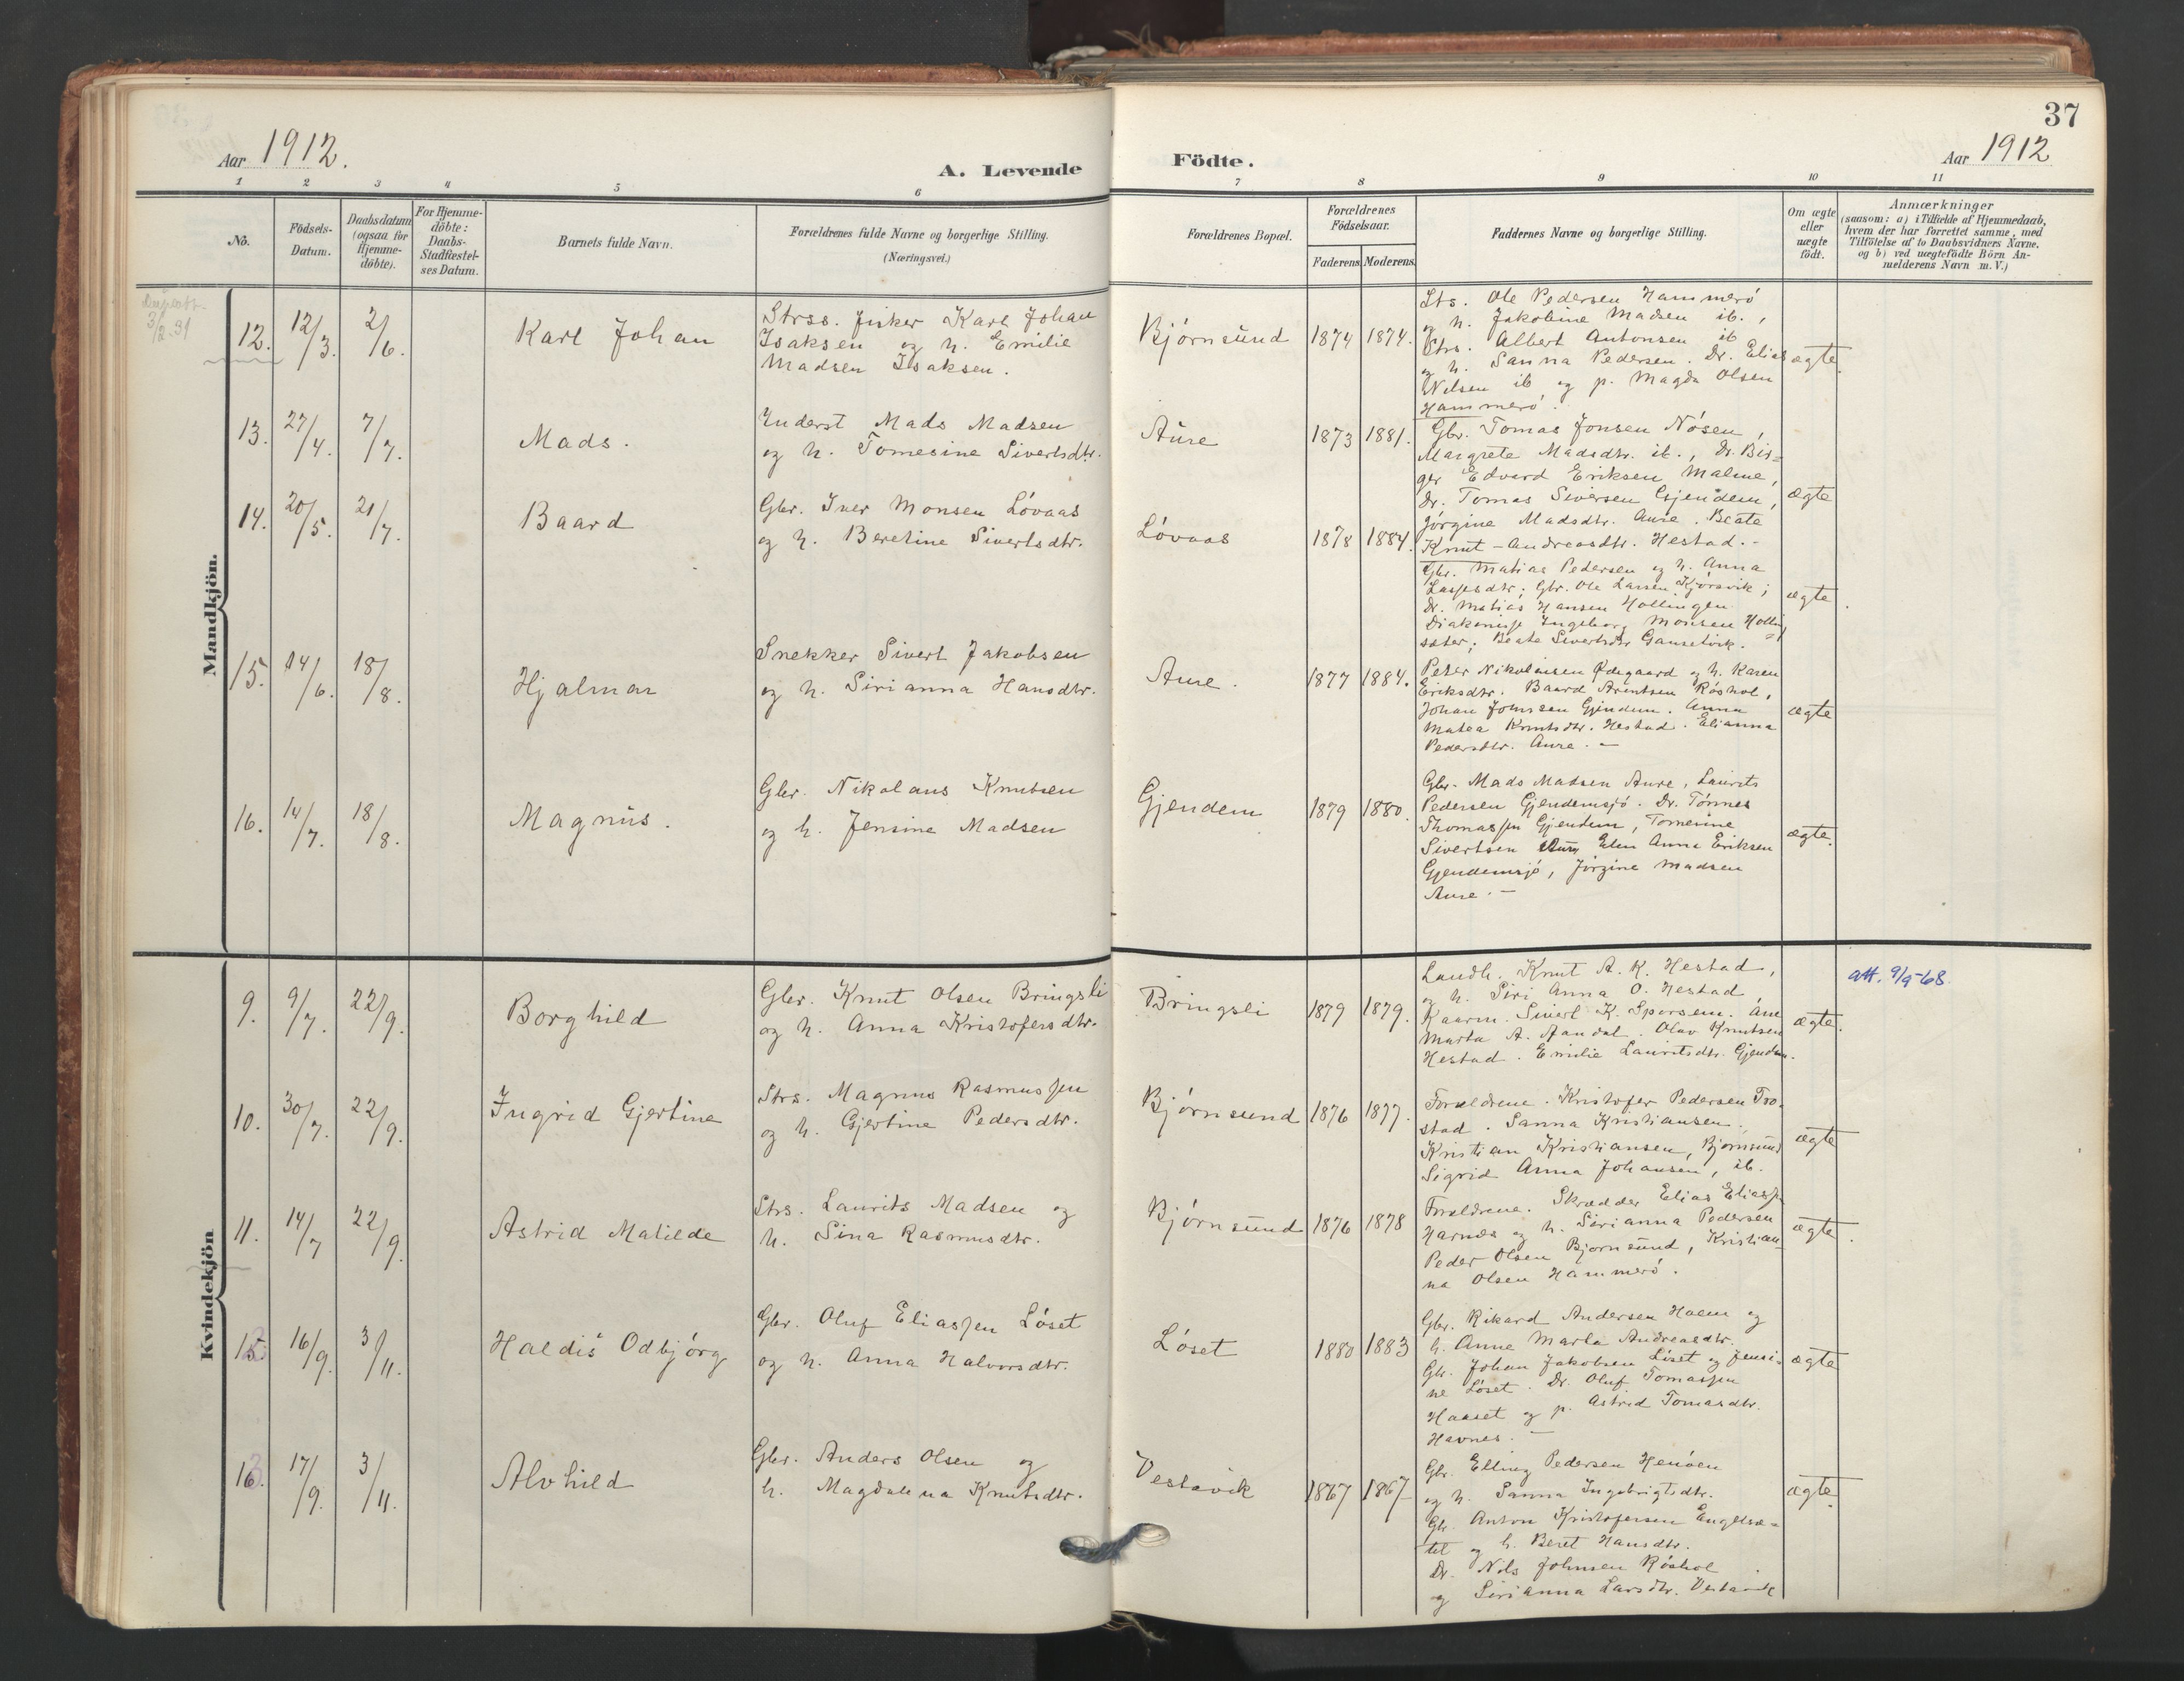 37
Aar 1912.
A. Levende
Födte.
Aar 1912
1 2 3 4 5 6 7 8 9 10 11
No.
Födsels-
Datum.
Daabsdatum
(ogsaa for
Hjemme-
döbte).
For Hjemme-
döbte:
Daabs-
Stadfæstel-
ses Datum.
Barnets fulde Navn.
Forældrenes fulde Navne og borgerlige Stilling.
(Næringsvei.)
Forældrenes Bopæl.
Forældrenes
Födselsaar.
Faderens Moderens.
Faddernes Navne og borgerlige Stilling.
Om ægte
eller
uægte
födt.
Anmærkninger
(saasom: a) i Tilfælde af Hjemmedaab,
hvem der har forrettet samme, med
Tilföielse af to Daabsvidners Navne.
og b) ved uægtefödte Börn An-
melderens Navn m. V.)
Mandkjön.
3/2.31
12. 12/3. 2/6.
Karl Johan
Strss. fisker Karl Johan
Isaksen og h. Emilie
Madsen Isaksen.
Bjørnsund
1874 1874.
Sts. Ole Pedersen Hammerö
og h. Jakobine Madsen ib.,
Strs. Albert Antonsen ib
og h. Sanna Pedersen. Dr. Elias
Nilsen ib og p. Magda Olsen
Hammerö.
ægte.
13. 27/4. 7/7.
Mads.
Inderst Mads Madsen
og h. Tomesine Sivertsdtr.
Aure
1873 1881.
Gbr. Tomas Jonsen Nösen,
Margrete Madsdtr. ib., Dr. Bir-
ger Edvard Eriksen Malme,
Dr. Tomas Siversen Gjendem,
Jörgine Madsdtr. Aure. Beate
Knut-Andreasdtr. Hestad.-
ægte
14. 20/5. 21/7.
Baard
Gbr. Iver Monsen Lövaas
og h. Beretine Sivertsdtr.
Lövaas
1878 1884.
Gbr. Matias Pedersen og h. Anna
Lassesdtr; Gbr. Ole Larsen Kjörsvik;
Dr. Matias Hansen Hollingen
Diakonisse Ingeborg Monsen Holling
sæter; Beate Sivertsdtr
ægte.
15. 14/6. 18/8.
Hjalmar
Snekker Sivert Jakobsen
og h. Sirianna Hansdtr.
Aure.
1877 1884.
Peter Nikolaisen Ødegaard og h. Karen
Eriksdtr. Baard Arentsen Röshol,
Johan Gjendem. Anna
Matea Knutsdtr. Hestad. Elianna
Pedersdtr. Aure. -
ægte
16. 14/7. 18/8.
Magnus.
Gbr. Nikolaus Knutsen
og h. Jensine Madsen
Gjendem
1879 1880.
Gbr. Mads Madsen Aure, Laurits
Pedersen Gjendemsjö. Dr. Tönnes
Thomassen Gjendem, Tomesine
Sivertsen Aure Elen Anna Eriksen
Gjendemsjö, Jörgine Madsen
Aure. -
ægte.
Kvindekjön
9. 9/7. 22/9.
Borghild
Gbr. Knut Olsen Bringsli
og h. Anna Kristofersdtr.
Bringsli
1879 1879.
Landh. Knut A. K. Hestad,
og h. Siri Anna O. Hestad,
Kaarm. Sivert K. Sporsem. Ane
Marta A. Aandal. Olav Knutsen
Hestad. Emilie Lauritsdtr. Gjendem.
ægte.
att. 9/9-68
10. 30/7. 22/9.
Ingrid Gjertine
Strs. Magnus Rasmussen
og h. Gjertine Pedersdtr.
Bjørnsund
1876 1877.
Forældrene. Kristofer Pedersen Tro-
stad. Sanna Kristiansen.
Kristian Kristiansen, Bjørnsund
Sigrid Anna Johansen, ib.
ægte
11. 14/7 22/9.
Astrid Matilde
Strs. Laurits Madsen og
h. Sina Rasmusdtr.
Bjørnsund
1876 1878
Forældrene. Skrædder Elias Eliass.
Harnes og h. Sirianna Pedersen
Peder Olsen Bjornsund, Kristian-
na Olsen Hammerö.
ægte.
16/9. 3/11.
Haldis Odbjörg
Gbr. Oluf Eliassen Löset
og h. Anna Halvorsdtr.
Löset
1880 1883
Gbr. Rikard Andersen Holm og
h. Anne Marta Andreasdtr.
Gbr. Johan Jakobsen Löset og Jensi-
ne Löset. Dr. Oluf Tomassen
Haaset og p. Astrid Tomasdtr.
Havnes. -
ægte
17/9. 3/11.
Alvhild
Gbr. Anders Olsen og
h. Magdalena Knutsdtr.
Vestavik
1867 1867
Gbr. Elling Pedersen Henöen
og h. Sanna Ingebrigtsdtr.
Gbr. Anton Kristofersen Engelsæ-
tel og h. Beret Hansdtr.
Dr. Nils Johnsen Röshol
og Sirianna Larsdtr. Vestavik
ægte.